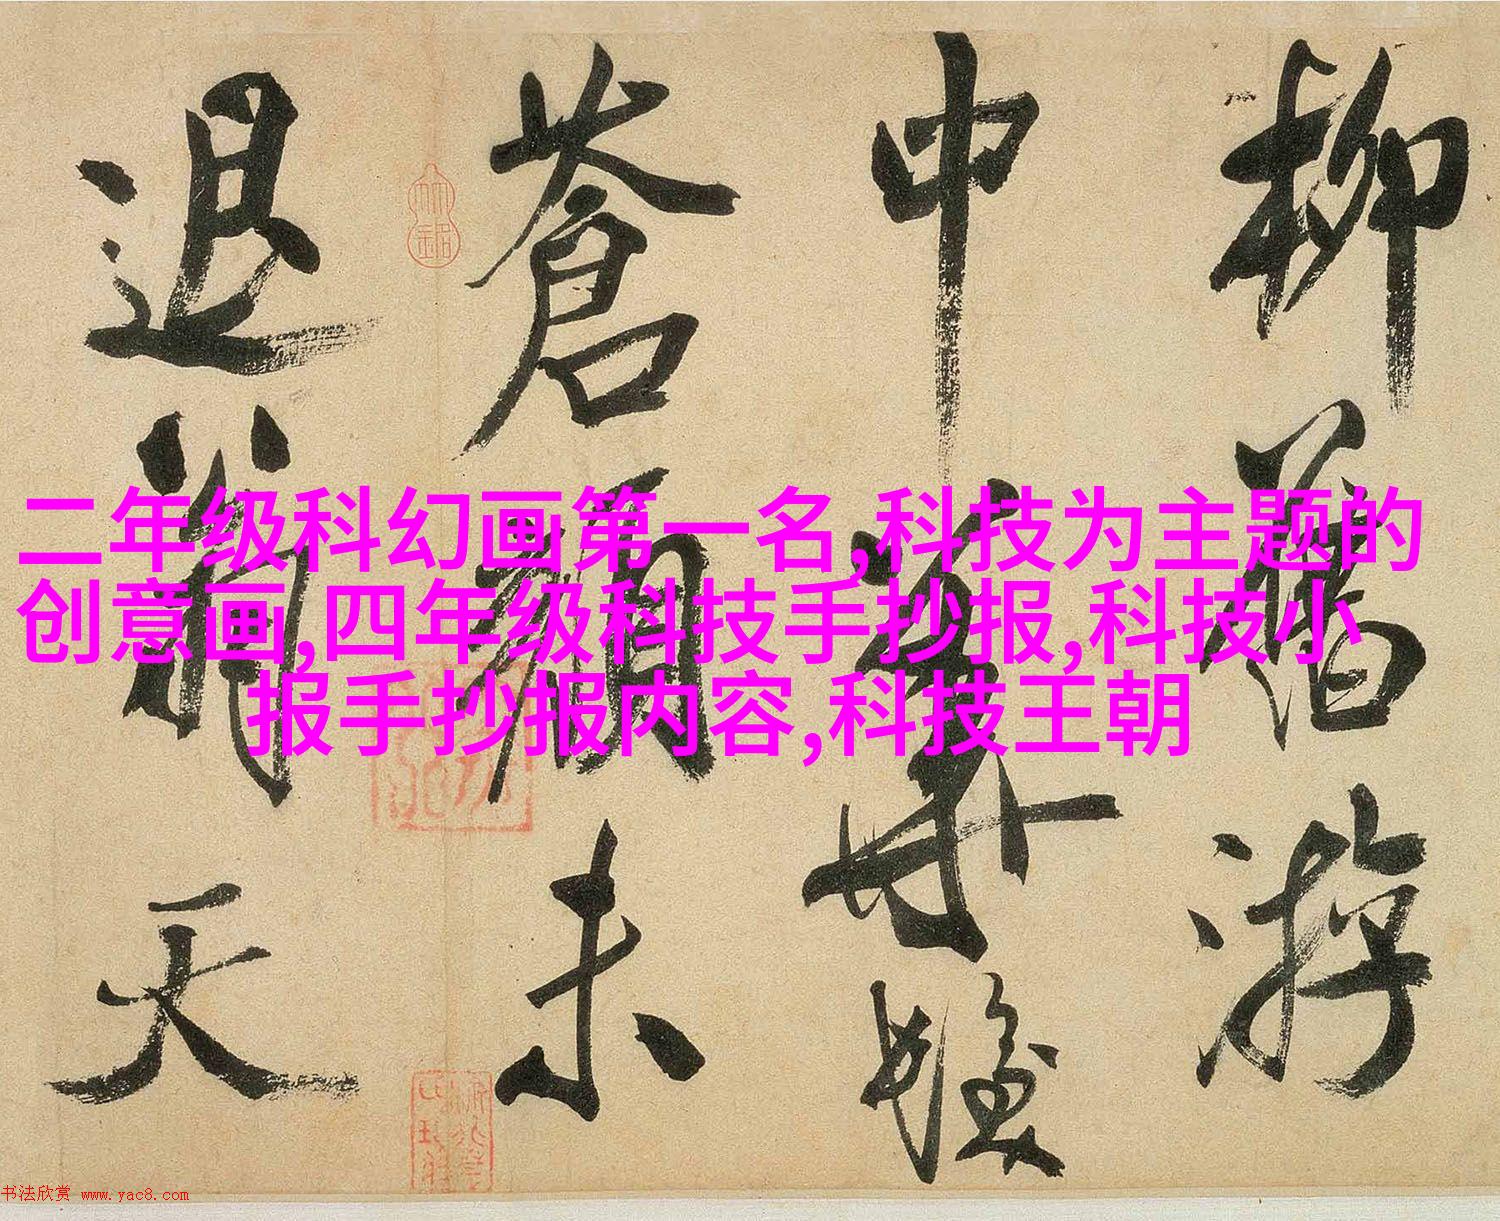 柳舊游
中華
蒼顏未
退翁天
二年级科幻画第一名,科技为主题的
创意画,四年级科技手抄报,科技小
报手抄报内容,科技王朝
书法欣赏 www.yac8.com